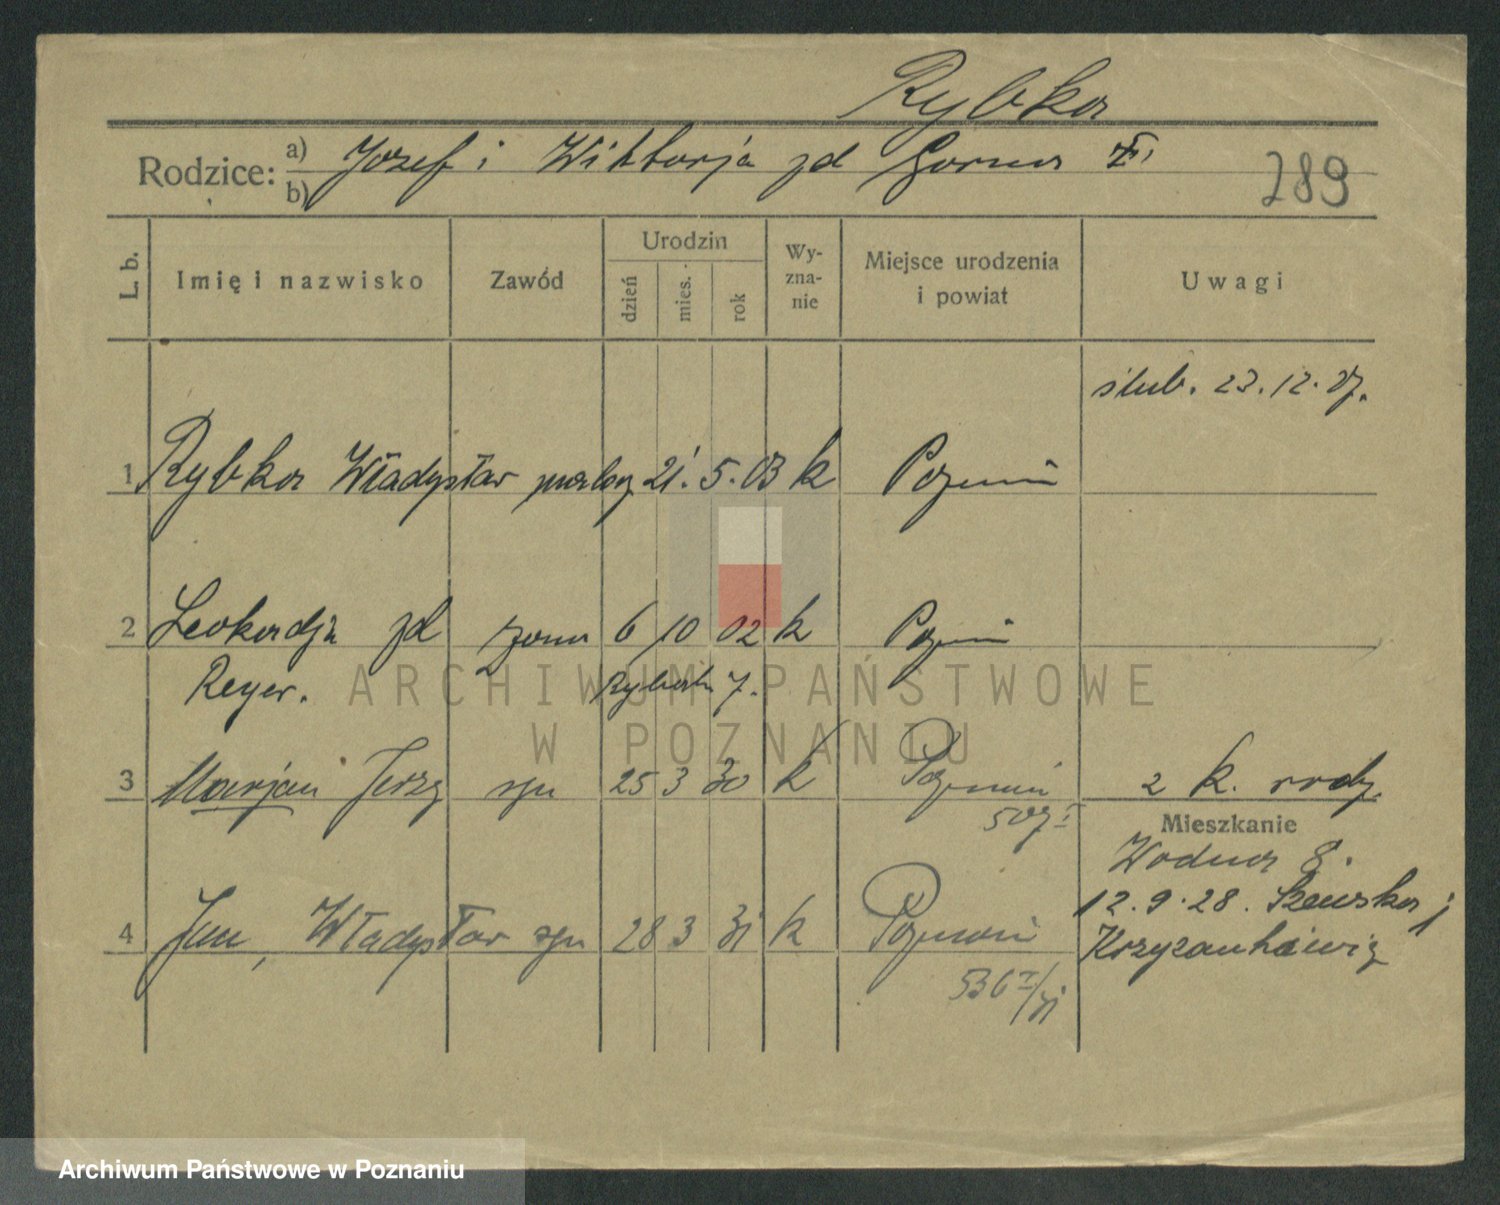 Rybka
Rodzice: a) Józef i Wiktorja zd Gorna
b)
289
L. b. Imię i nazwisko Zawód Urodzin dzień mies. rok Wy-zna-nie Miejsce urodzenia i powiat Uwagi
ślub. 23.12.27.
1 Rybka Władysław 21. 5. 03 k Poznań
2 Leokadja zd żona 6 10 02 k Poznań
Reyer. 7.
ARCHIWUM PAŃSTWOWE
W POZNANIU
3 Marjan Jerzy syn 25 3 30 k Poznań 2 k. rodz.
Mieszkanie
Wodna 8.
12.9.28. Szewska
4 Jan, Władysław syn 28 3 31 k Poznań
536 I/31
Archiwum Państwowe w Poznaniu